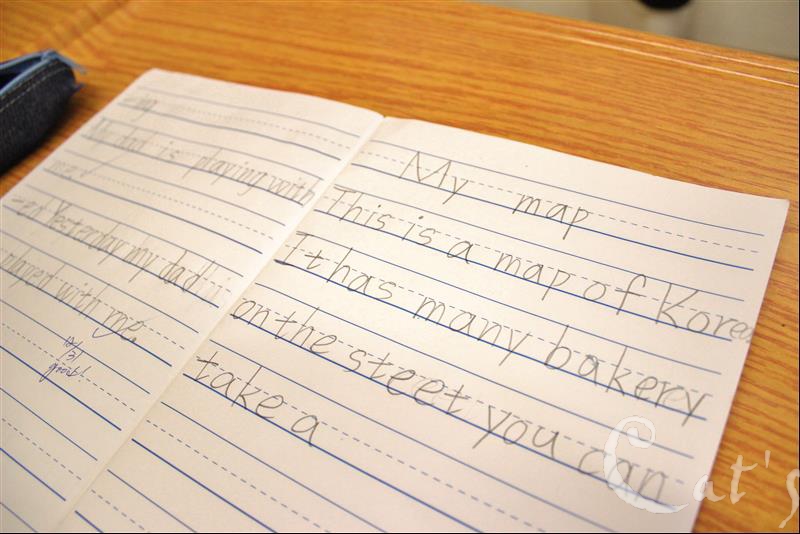 -ing
My dad is playing with
me.
-ed Yesterday my dad
played with me.
12/31
good!
My map
This is a map of Korea
It has many bakery
on the steet you can
take a
Cat's